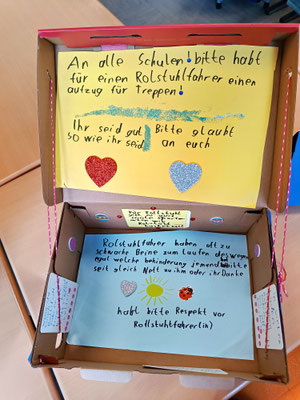 An alle Schulen! bitte habt
für einen Rolstuhlfahrer einen
aufzug für Treppen!
Ihr seid gut Bitte glaubt
so wie ihr seid an euch
Rolstuhlfahrer haben oft zu
schwache Beine zum Laufen deswegen
egal welche behinderung jemand bitte
seit gleich Nett zu ihm oder ihr Danke
habt bitte Respekt vor
Rollstuhlfahrer(in)